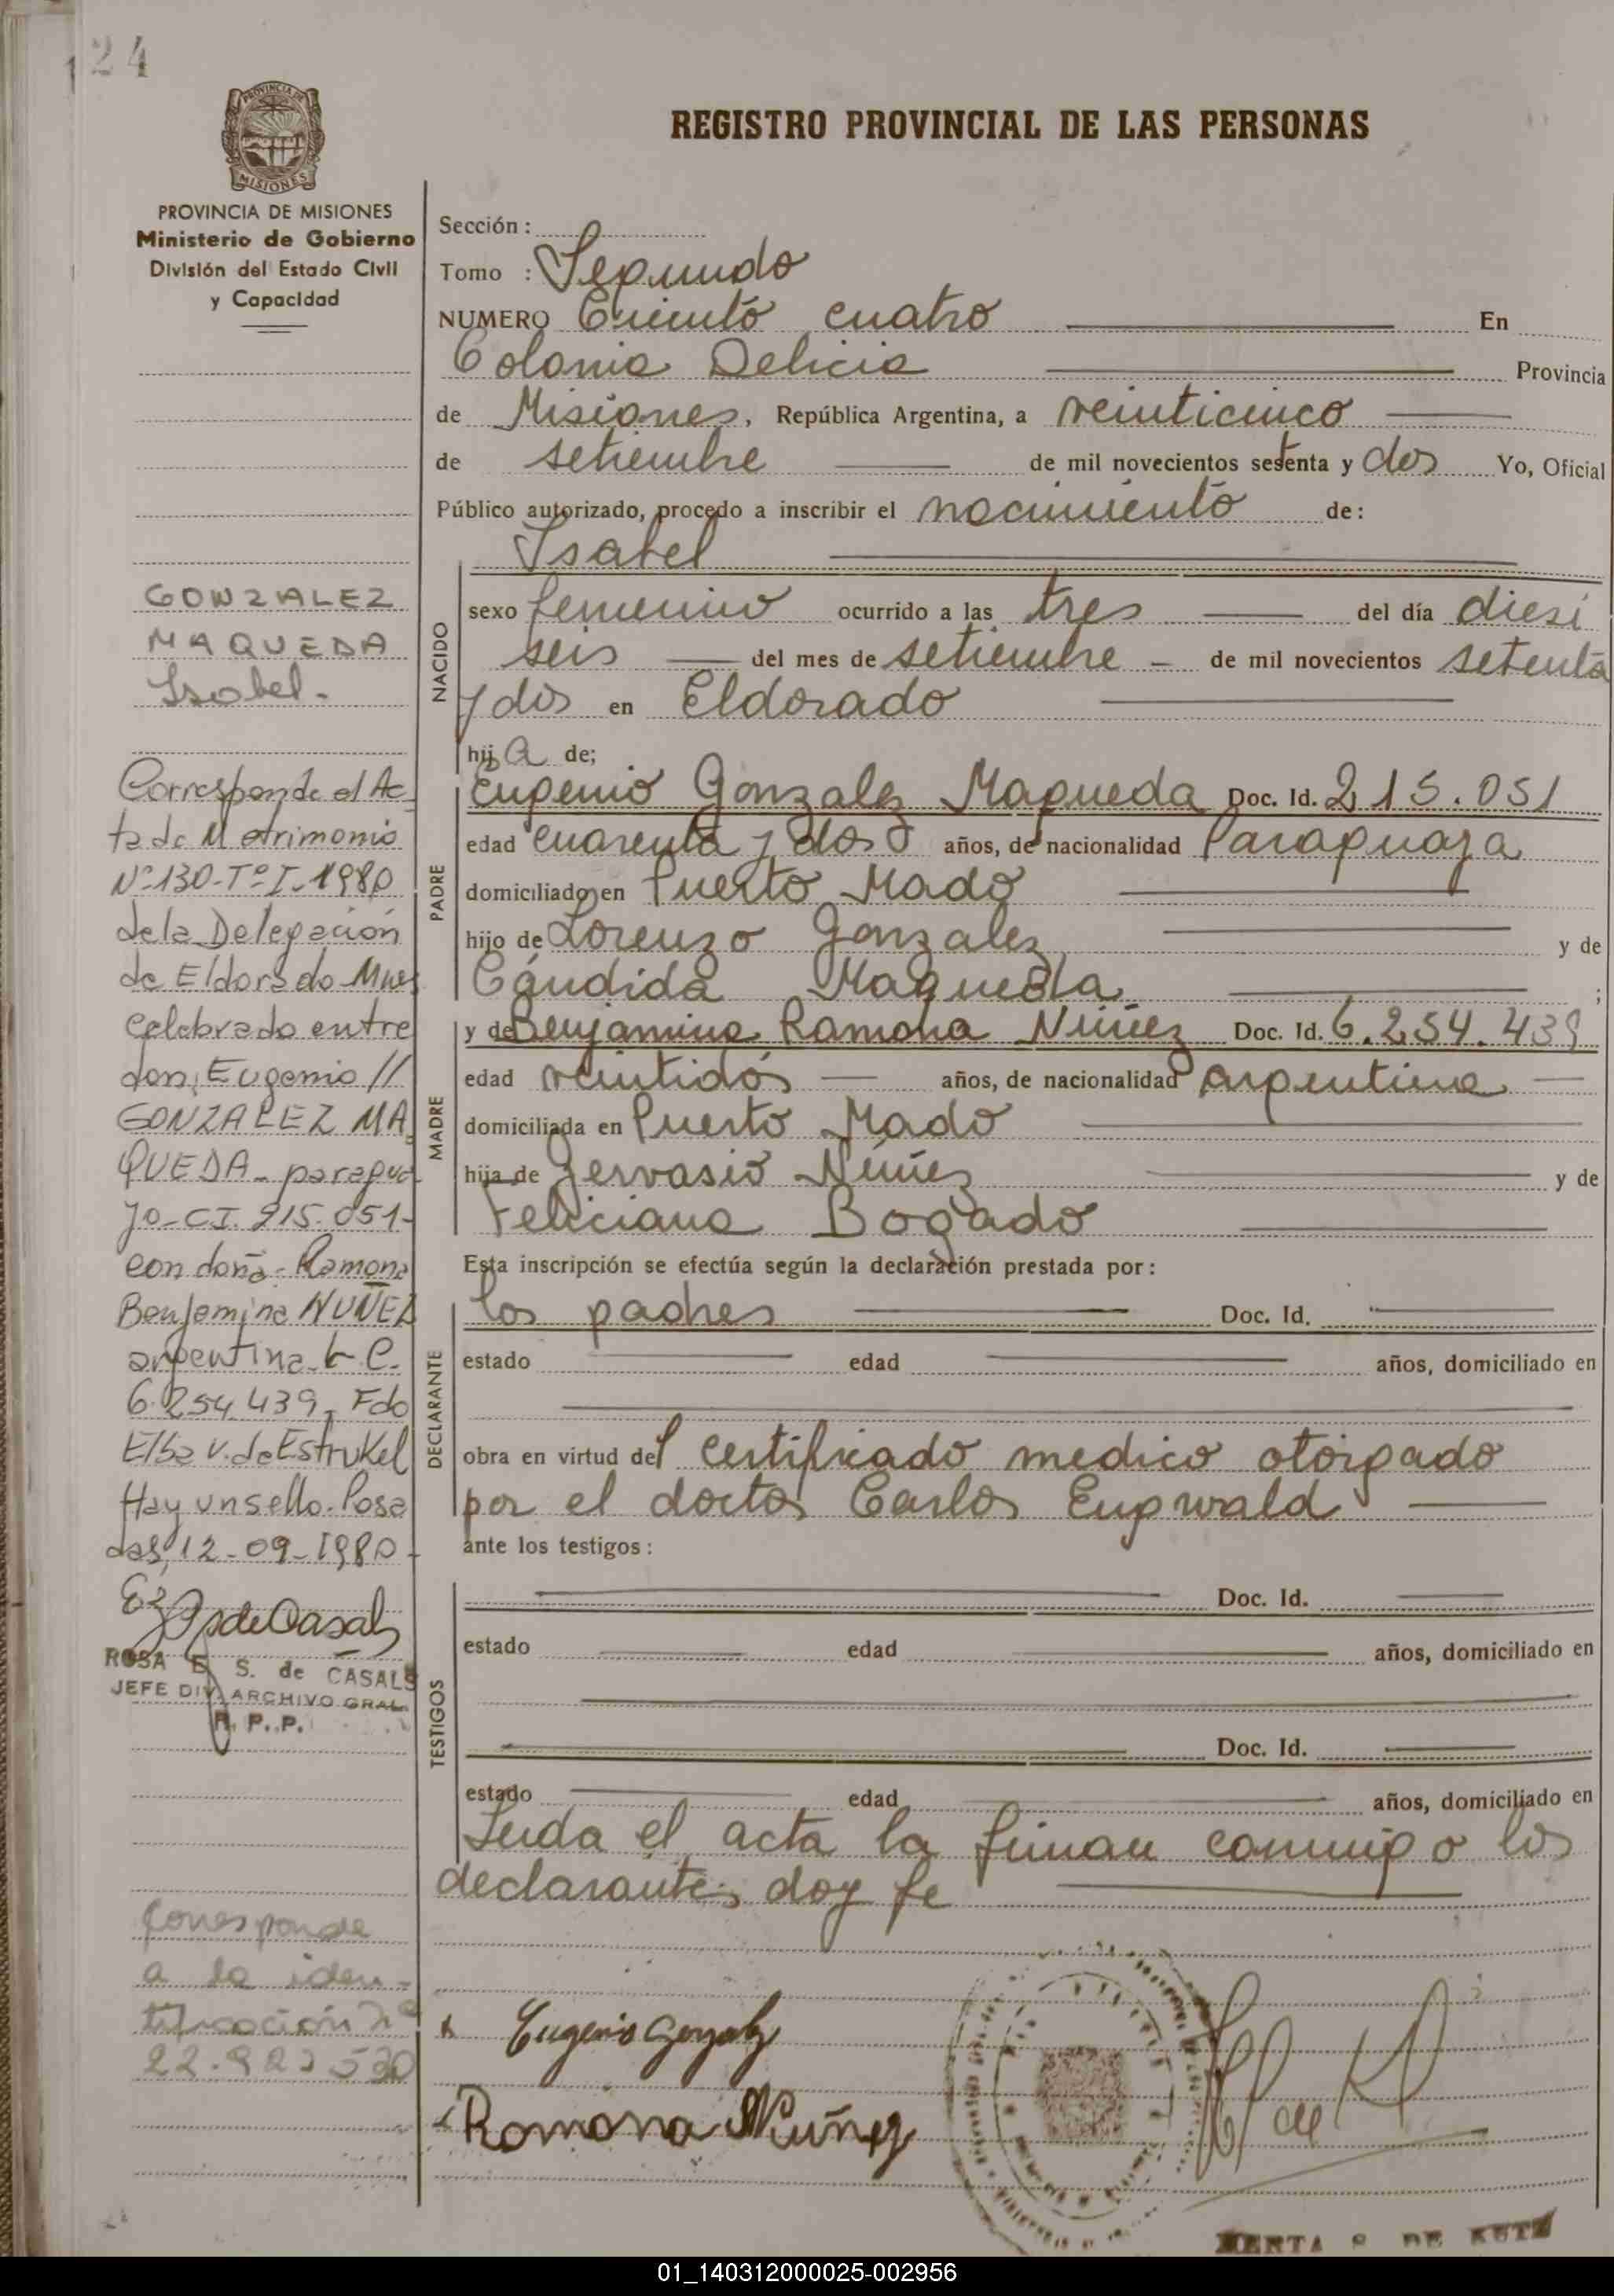 124
PROVINCIA DE MISIONES
PROVINCIA DE MISIONES
Ministerio de Gobierno
División del Estado Civil
y Capacidad
GONZALEZ
MAQUEDA
Isabel.-
Corresponde el Ac-
ta de Matrimonio
Nº 130-Tº I-1980
de la Delegación
de Eldorado Mnes
celebrado entre
don, Eugenio //
GONZALEZ MA
QUEDA - paragua
yo - CI. 215.051-
con doña - Ramona
Benjamina NUÑEZ
argentina - L C.
6.254.439 - Fdo
Elba V. de Estrukel
Hay un sello. Posa
das, 12-09-1980-
ROSA E. S. de CASALS
JEFE DIV. ARCHIVO GRAL.
R. P. P.
Corresponde
a la iden-
tificación nº
REGISTRO PROVINCIAL DE LAS PERSONAS
Sección:
Tomo : Segundo
NUMERO Ciento cuatro En
Colonia Delicia Provincia
de Misiones, República Argentina, a veinticinco
de setiembre de mil novecientos setenta y dos Yo, Oficial
Público autorizado, procedo a inscribir el nacimiento de:
Isabel
NACIDO
sexo femenino ocurrido a las tres del día diesi
seis del mes de setiembre - de mil novecientos setenta
y dos en Eldorado
hija de;
PADRE
Eugenio Gonzalez Maqueda Doc. Id. 215.051
edad cuarenta y dos años, de nacionalidad Paraguaya
domiciliado en Puerto Mado
hijo de Lorenzo Gonzalez y de
Cándida Maqueda ;
MADRE
y de Benjamina Ramona Núñez Doc. Id. 6.254.439
edad veintidós años, de nacionalidad argentina
domiciliada en Puerto Mado
hija de Gervasio Núñez y de
Feliciana Bogado
Esta inscripción se efectúa según la declaración prestada por:
DECLARANTE
los padres Doc. Id.
estado edad años, domiciliado en
obra en virtud del certificado medico otorgado
por el doctor Carlos Eugwald
ante los testigos:
TESTIGOS
Doc. Id.
estado edad años, domiciliado en
Doc. Id.
estado edad años, domiciliado en
Leida el acta la firman conmigo los
declarantes, doy fe
x Eugenio Gonzalez
x Ramona Nuñez
HERTA S. DE KUTZ
01_140312000025-002956